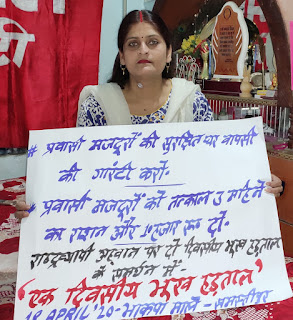 # प्रवासी मजदूरों की सुरक्षित घर वापसी
की गारंटी करो.
# प्रवासी मजदूरों को तत्काल 3 महिने
का राशन और 10 हजार रू० दो.
राष्ट्रव्यापी आह्वान पर दो दिवसीय भूख हड़ताल
के समर्थन में-
'एक दिवसीय भूख हड़ताल'
18 APRIL '20- भाकपा माले - समस्तीपुर